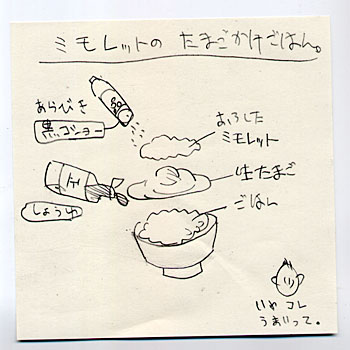 ミモレットの たまごかけごはん。
あらびき
黒コショー
おろした
ミモレット
生たまご
しょうゆ
ごはん
いや コレ
うまいって。